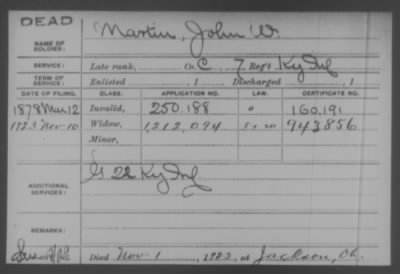 DEAD
NAME OF SOLDIER: Martin, John W.
SERVICE: Late rank, Co. C, 7 Reg't Ky Inf
TERM OF SERVICE: Enlisted , 1 Discharged , 1
DATE OF FILING. CLASS. APPLICATION NO. LAW. CERTIFICATE NO.
1878 Mar 12 Invalid, 250.188 160.191
1923 Nov 10 Widow, 1,212,094 943856
Minor,
ADDITIONAL SERVICES: G 22 Ky Inf
REMARKS:
Died Nov 1, 1923, at Jackson, O.